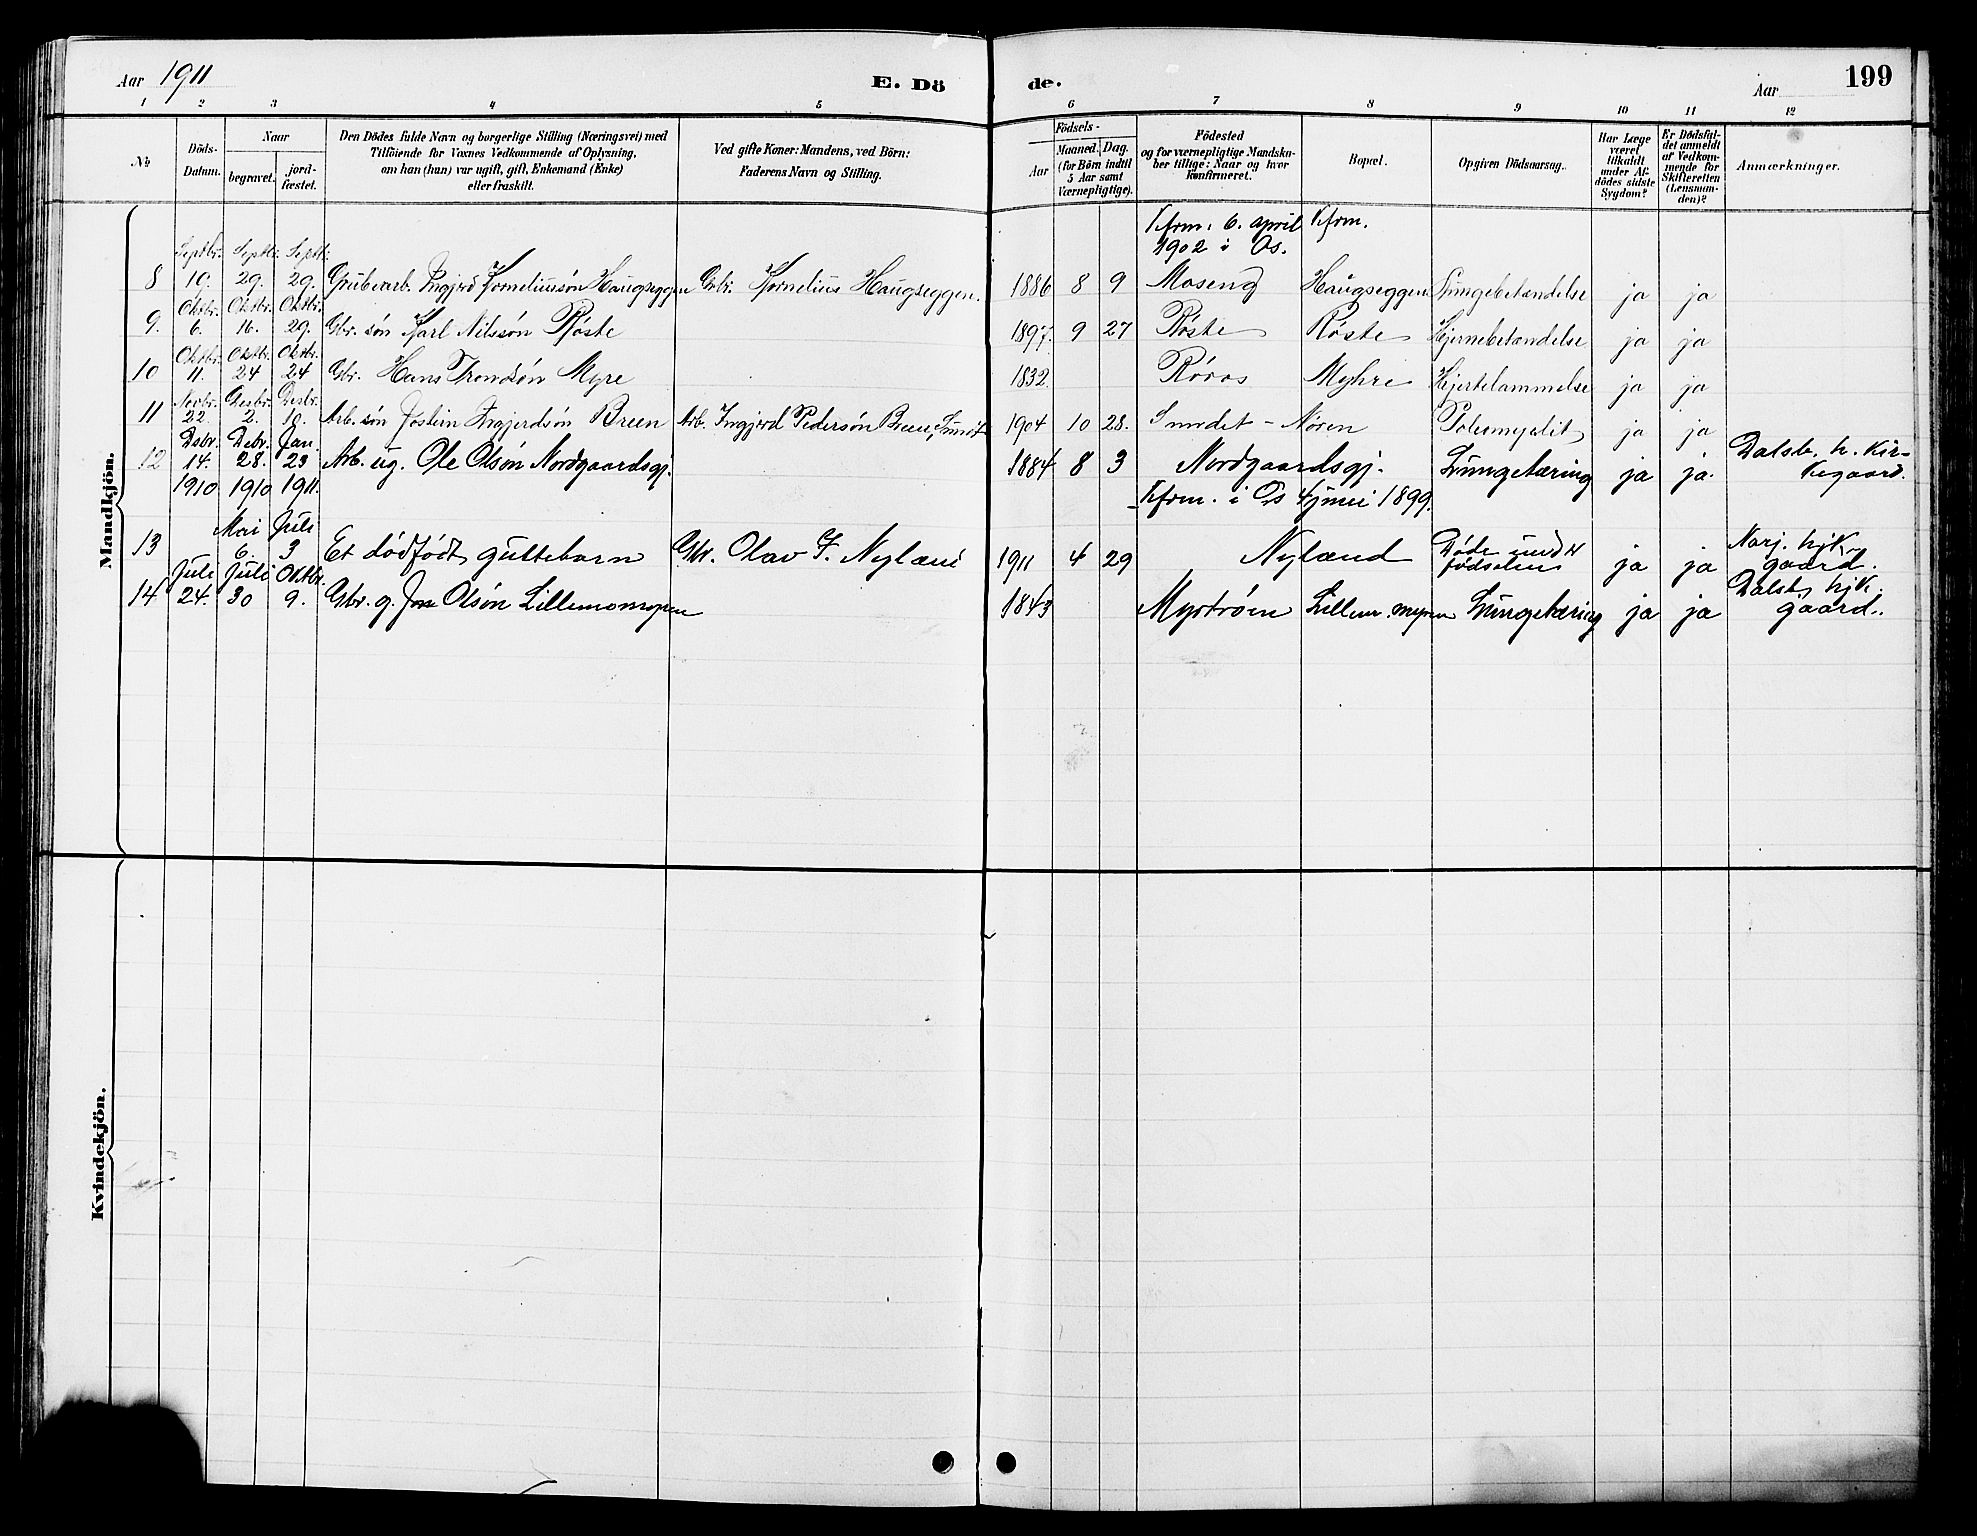 Aar 1911 E. Dö de. Aar 199
1 2 3 4 5 6 7 8 9 10 11 12
No
Döds-Datum.
Naar
begravet.
jord-fæstet.
Den Dödes fulde Navn og borgerlige Stilling (Næringsvei) med
Tilföiende for Voxnes Vedkommende af Oplysning,
om han (hun) var ugift, gift, Enkemand (Enke)
eller fraskilt.
Ved gifte Koner: Mandens, ved Börn:
Faderens Navn og Stilling.
Födsels-
Aar
Maaned. Dag.
(for Börn indtil
5 Aar samt
Værnepligtige).
Födested
og for værnepligtige Mandska-
ber tillige: Naar og hvor
konfirmeret.
Bopæl.
Opgiven Dödsaarsag.
Har Læge
været
tilkaldt
under Af-
dödes sidste
Sygdom?
Er Dödsfal-
det anmeldt
af Vedkom-
mende for
Skifteretten
(Lensman-
den)?
Anmærkninger.
Mandkjön.
Kfrm. 6. april Kfrm.
1902 i Os.
Septbr. Septbr. Septbr.
8 10. 29. 29. Grubearb. Ingjerd Korneliussön Haugseggen Gbr. Kornelius Haugseggen. 1886 8 9 Moseng Haugseggen Lungebetændelse ja ja
Oktbr. Oktbr. Oktbr.
9. 6. 16. 29. Gbr. søn Karl Nilssøn Røste 1897. 9 27 Røste Røste Hjernebetændelse ja ja
Oktbr. Oktbr. Oktbr.
10 11. 24 24 Gbr. Hans Trondsøn Myre 1832 Røros Myhre Hjertelammelse ja ja
Novbr. Desbr. Desbr.
11 22. 2. 10. Arb. søn Jostein Ingjerdsøn Breen Arb. Ingjerd Pedersøn Breen, 1904 10 28. Smedet - Nøren Poliomyelit ja ja
Dsbr. Debr. Jan.
12 14. 28. 23 Arb. ug. Ole Olsøn Nordgaardsgj. 1884 8 3 Nordgaardsgj. Lungetæring ja ja. Dalsb. h. kir-
kegaard.
1910 1910 1911. Kfrm. i Os 4 juni 1899.
Mai Juli
13 6. 3 Et dødfødt guttebarn Gbr. Olav J. Nyland 1911 4 29 Nyland Døde under
fødselen ja ja Narj. hjk.-
gaard.
Juli Juli Oktbr.
14 24. 30 9. Gbr. g. Jon Olsøn Lillemomyren 1843 Myrtrøen Lillem. myren Lungetæring ja ja Dalsb. hjk.
gaard.
Kvindekjön.